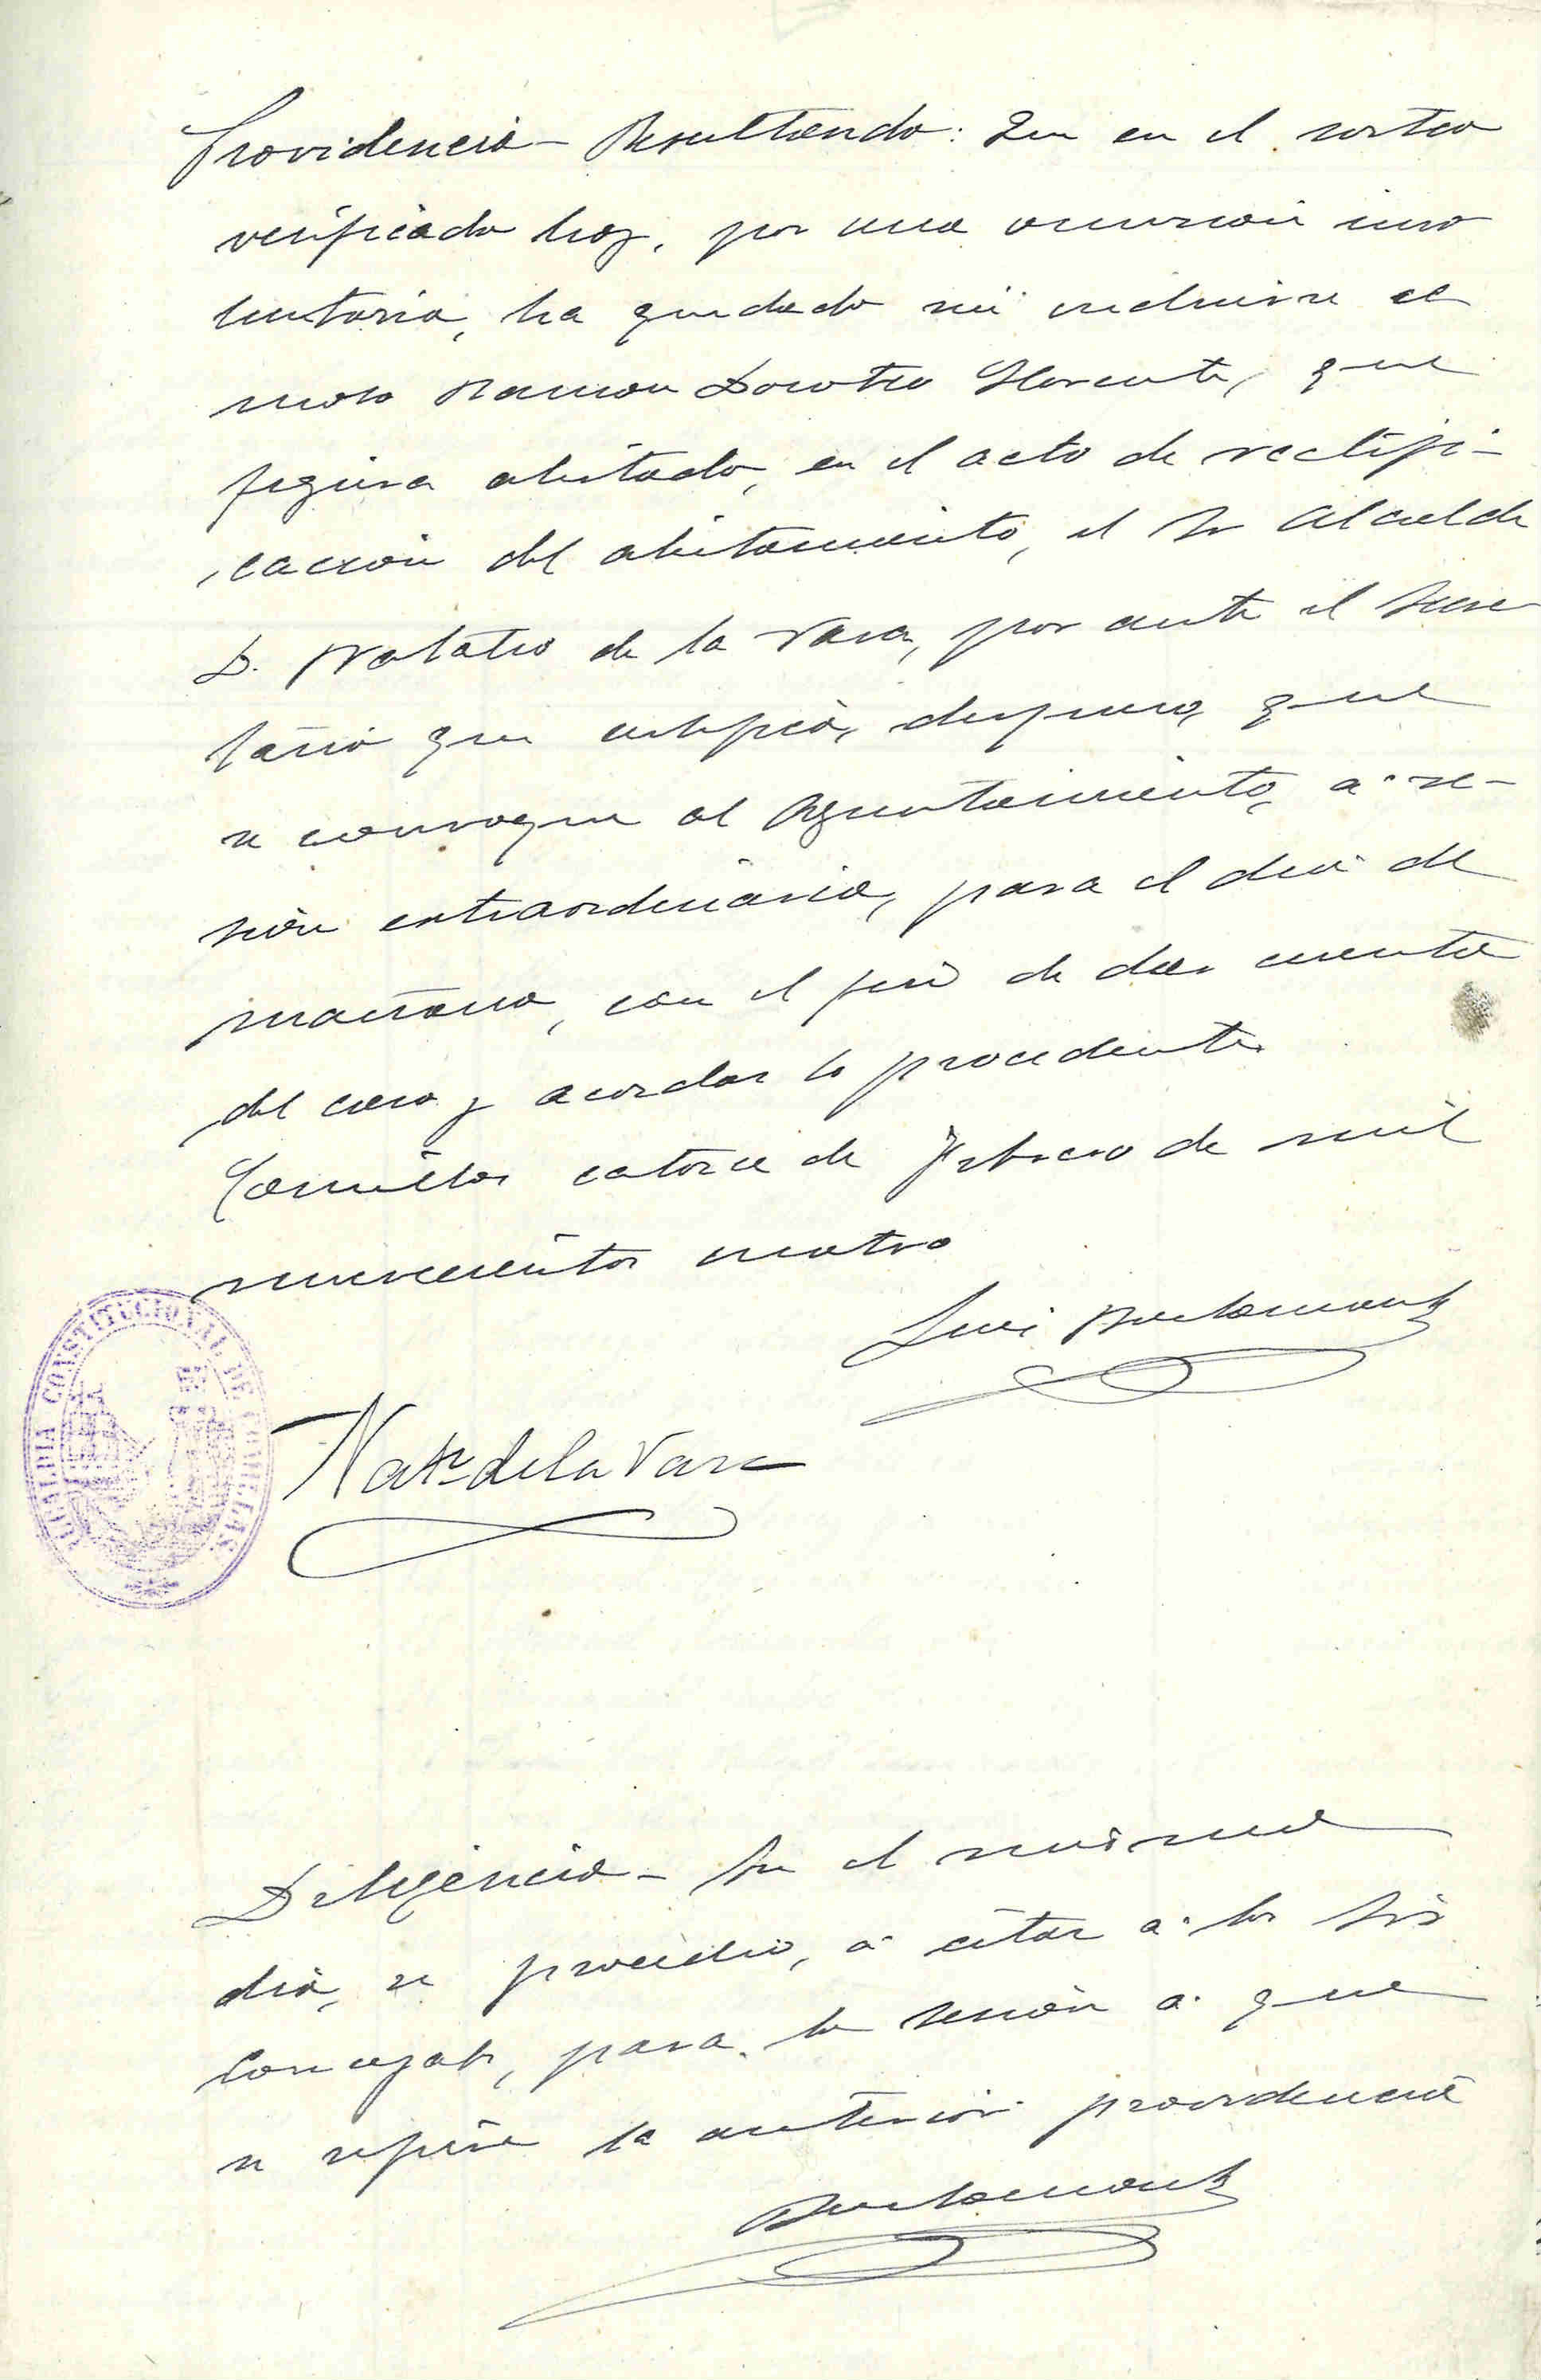 Providencia - Resultando: Que en el sorteo
verificado hoy, por una omision invo
luntaria, ha quedado sin incluirse el
mozo Ramon Doroteo Llorente, que
figura alistado, en el acto de rectifi-
cación del alistamiento, el Sr Alcalde
D. de la Vara, por ante el Secre
tario que certifica, dispuso, que
se convoque al Ayuntamiento, a se-
sión extraordinaria, para el dia de
mañana, con el fin de dar cuenta
del caso y acordar lo procedente.
Comillas catorce de Febrero de mil
novecientos cuatro
Luis
ALCALDIA CONSTITUCIONAL DE COMILLAS
de la Vara
Diligencia - En el mismo
dia, se procedio, a citar a los Srs
Concejales, para la sesión a que
se refiere la anterior providencia